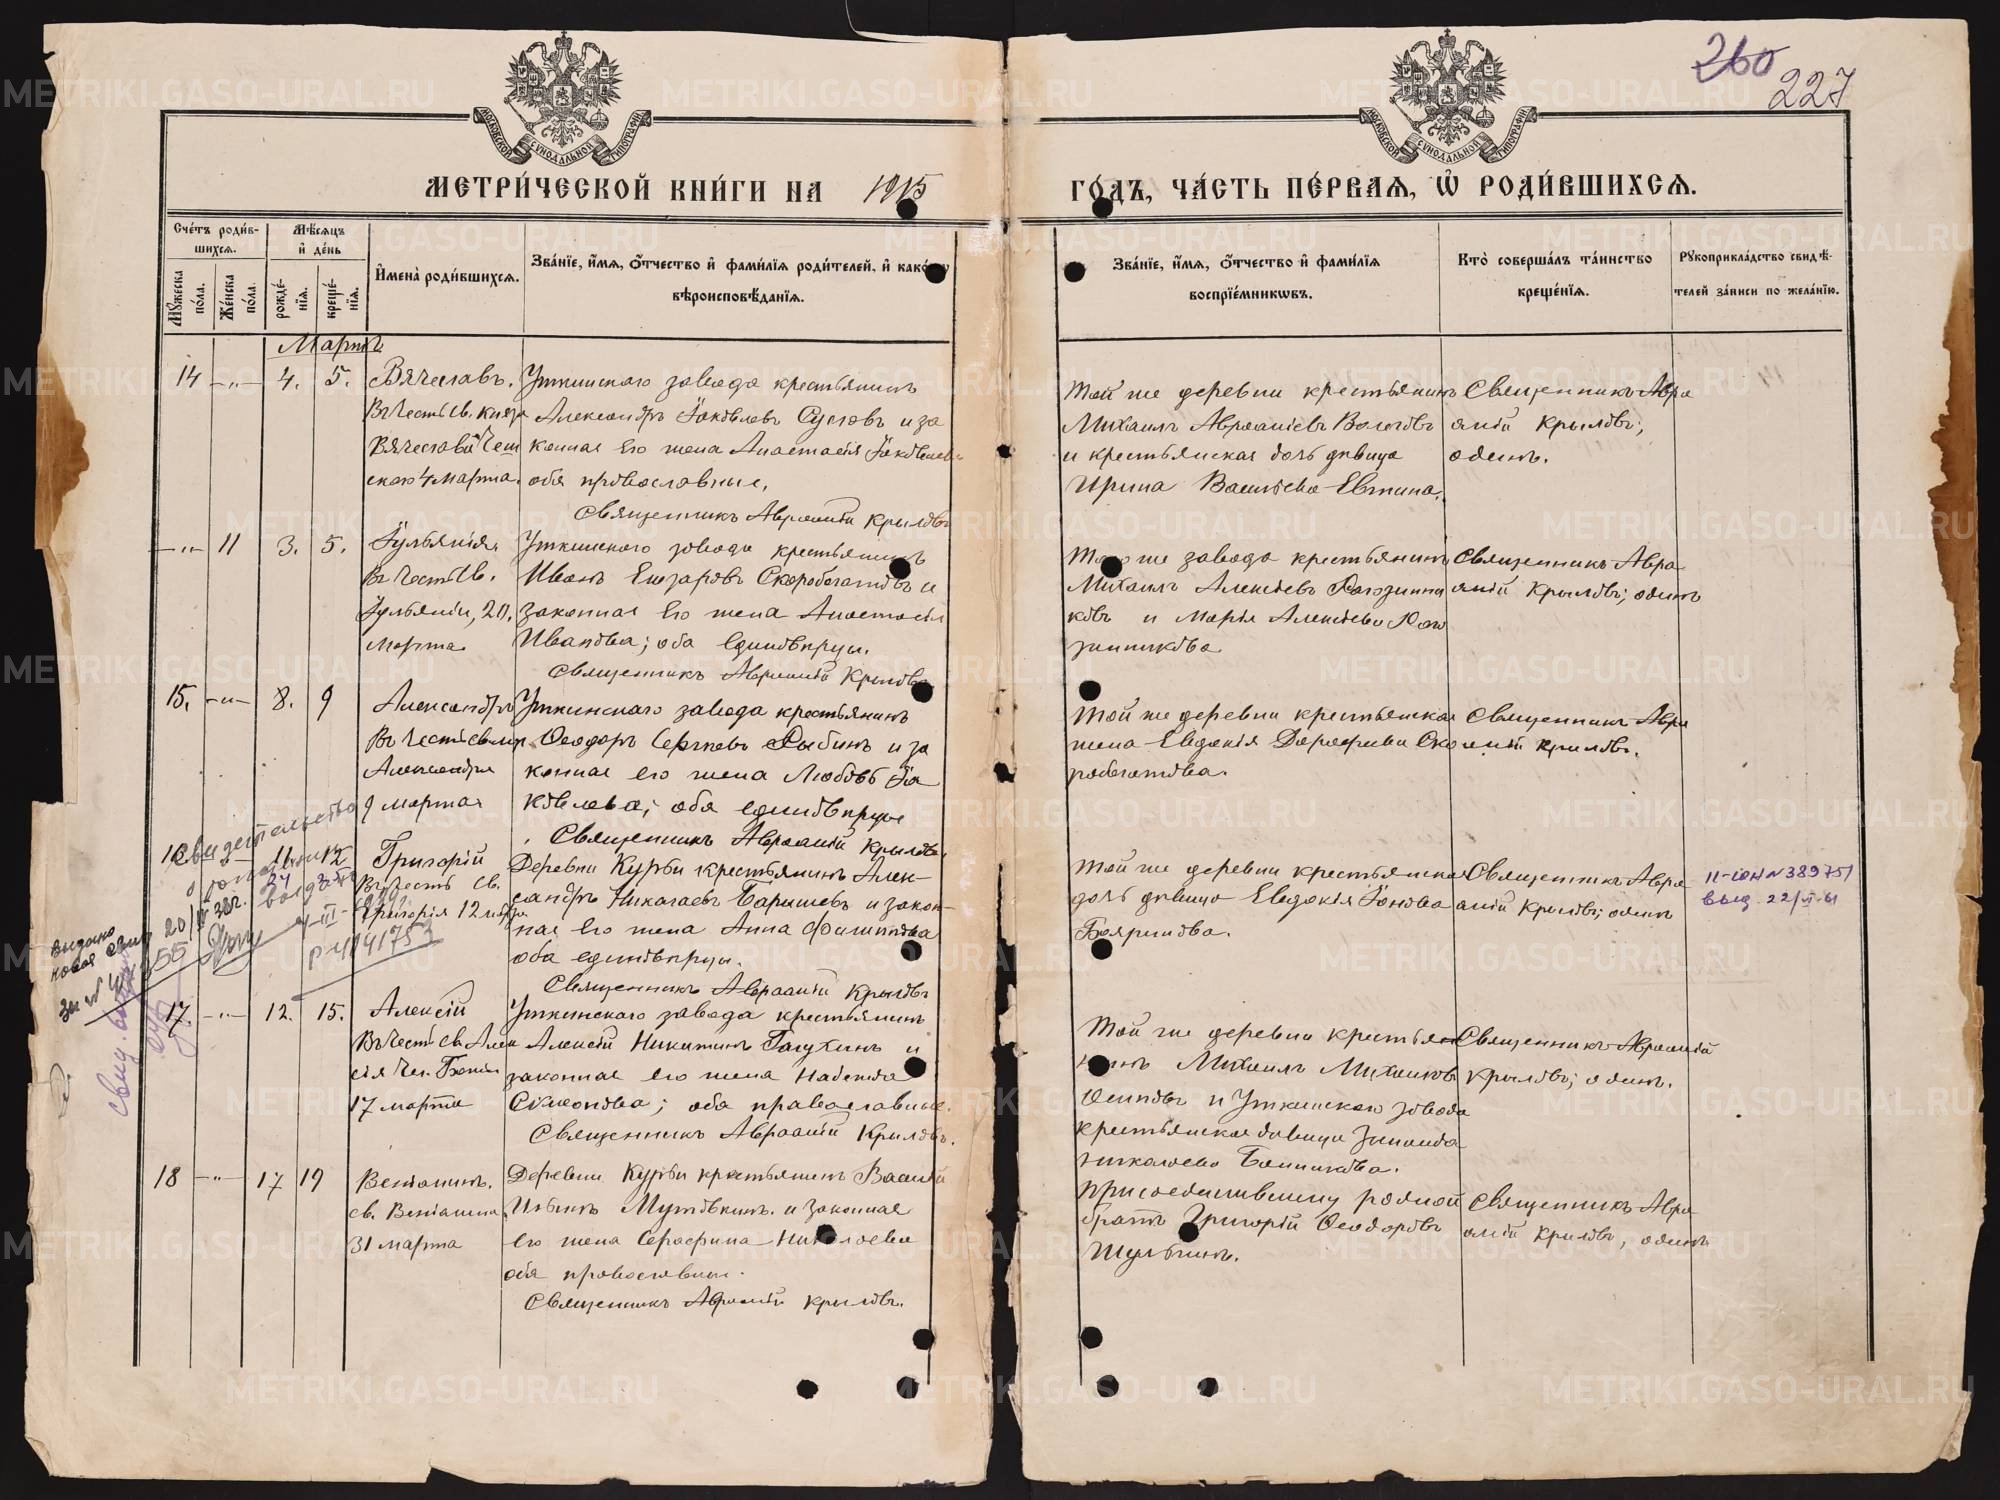 260
227
МОСКОВСКОЙ СУНОДАЛЬНОЙ ТИПОГРАФІИ
МОСКОВСКОЙ СУНОДАЛЬНОЙ ТИПОГРАФІИ
МЕТРИ́ЧЕСКОЙ КНИ́ГИ НА 1915 ГО́ДЪ, ЧА́СТЬ ПЕ́РВАЯ, Ѡ РОДИ́ВШИХСЯ.
Сче́тъ роди́в-
шихся.
Мѣ́сяцъ
и де́нь
Мꙋ́жеска
по́ла.
Же́нска
по́ла.
рожде́-
нїя.
креще́-
нїя.
И҆мена̀ роди́вшихся.
Зва́нїе, и҆́мя, о҆́тчество и҆ фами́лїя роди́телей, и҆ како́гѡ
вѣроисповѣ́данїя.
Зва́нїе, и҆́мя, о҆́тчество и҆ фами́лїя
воспрїе́мникѡвъ.
Кто̀ соверша́лъ та́инство
креще́нїя.
Рꙋкоприкла́дство свидѣ́-
телей за́писи по жела́нїю.
Мартъ
14 —„— 4. 5. Вячеславъ.
Въ честь св. князя
Вячеслава Чеш
скаго 4 марта.
Уткинскаго завода крестьянинъ
Александръ Іаковлевъ Сусловъ и за
конная его жена Анастасія Іаковлев
оба православные.
Священникъ Авраамій Крыловъ
Той же деревни крестьянинъ
Михаилъ Авраамiевъ
и крестьянская дочь дѣвица
Ирина Васильева
Священникъ Авра
амій Крыловъ;
одинъ.
—„— 11 3. 5. Іульянія.
Въ честь св.
Іульяніи, 20.
марта
Уткинскаго завода крестьянинъ
Иванъ Елизаровъ Скоробогатовъ и
законная его жена Анастасія
Иванова; оба единовѣрцы.
Священникъ Авраамій Крыловъ
Того же завода крестьянинъ
Михаилъ Алексѣевъ
ковъ и Марія Алексѣева
Священникъ Авра
амій Крыловъ; одинъ
15. —„— 8. 9 Александръ
Въ честь св. муч.
Александра
9 марта
Уткинскаго завода крестьянинъ
Ѳеодоръ Сергѣевъ Рыбинъ и за
конная его жена Любовь Іа
ковлева; оба единовѣрцы
Священникъ Авраамій Крыловъ
Той же деревни крестьянская
жена Евдокія Дорофеева Ско
робогатова.
Священникъ Авра
амій Крыловъ.
16 11 12 Григорій
Въ честь св.
Григорія 12 марта
Деревни Курьи крестьянинъ Алек-
сандръ Николаевъ Барышевъ и закон-
ная его жена Анна Филиппова
оба единовѣрцы.
Священникъ Авраамій Крыловъ
Той же деревни крестьянская
дочь дѣвица Евдокія Іонова
Священникъ Авра
амій Крыловъ; одинъ
II-ЮН N 389751
выд. 22/VI-61
свидетельство
о рождении
выдано
новое
17. —„— 12. 15. Алексій
Въ честь св. Алек
сія чел. Божія
17 марта
Уткинскаго завода крестьянинъ
Алексій Никитинъ Галухинъ и
законная его жена Надежда
Симеонова; оба православные.
Священникъ Авраамій Крыловъ.
Той же деревни крестья
нинъ Михаилъ Михайловъ
Осиповъ и Уткинскаго завода
крестьянская дѣвица Зинаида
Николаева
Священникъ Авраамій
Крыловъ; одинъ.
18 —„— 17 19 Веніаминъ.
св. Веніамина
31 марта
Деревни Курьи крестьянинъ Василій
Ильинъ и законная
его жена Серафима Николаева
оба православные.
Священникъ Авраамій Крыловъ.
родной
братъ Григорій Ѳеодоровъ
Шульгинъ.
Священникъ Авра
амій Крыловъ, одинъ
METRIKI.GASO-URAL.RU